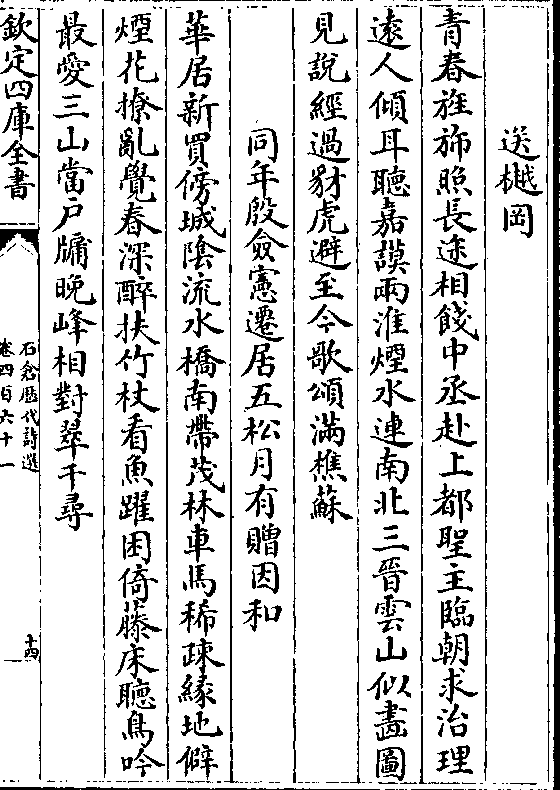 送樾岡
青春旌斾照長途相餞中丞赴上都聖主臨朝求治理
遠人傾耳聽嘉謨兩淮煙水連南北三晉雲山似畫圖
見說經過豺虎避至今歌頌滿樵蘇
同年殷僉憲遷居五松月有贈因和
華居新買傍城陰流水橋南帶茂林車馬稀疎緣地僻
煙花撩亂覺春深醉扶竹杖看魚躍困倚藤床聽鳥吟
最愛三山當戶牖晚峰相對翠千尋
欽定四庫全書
石倉歷代詩選
卷四百六十一
十四